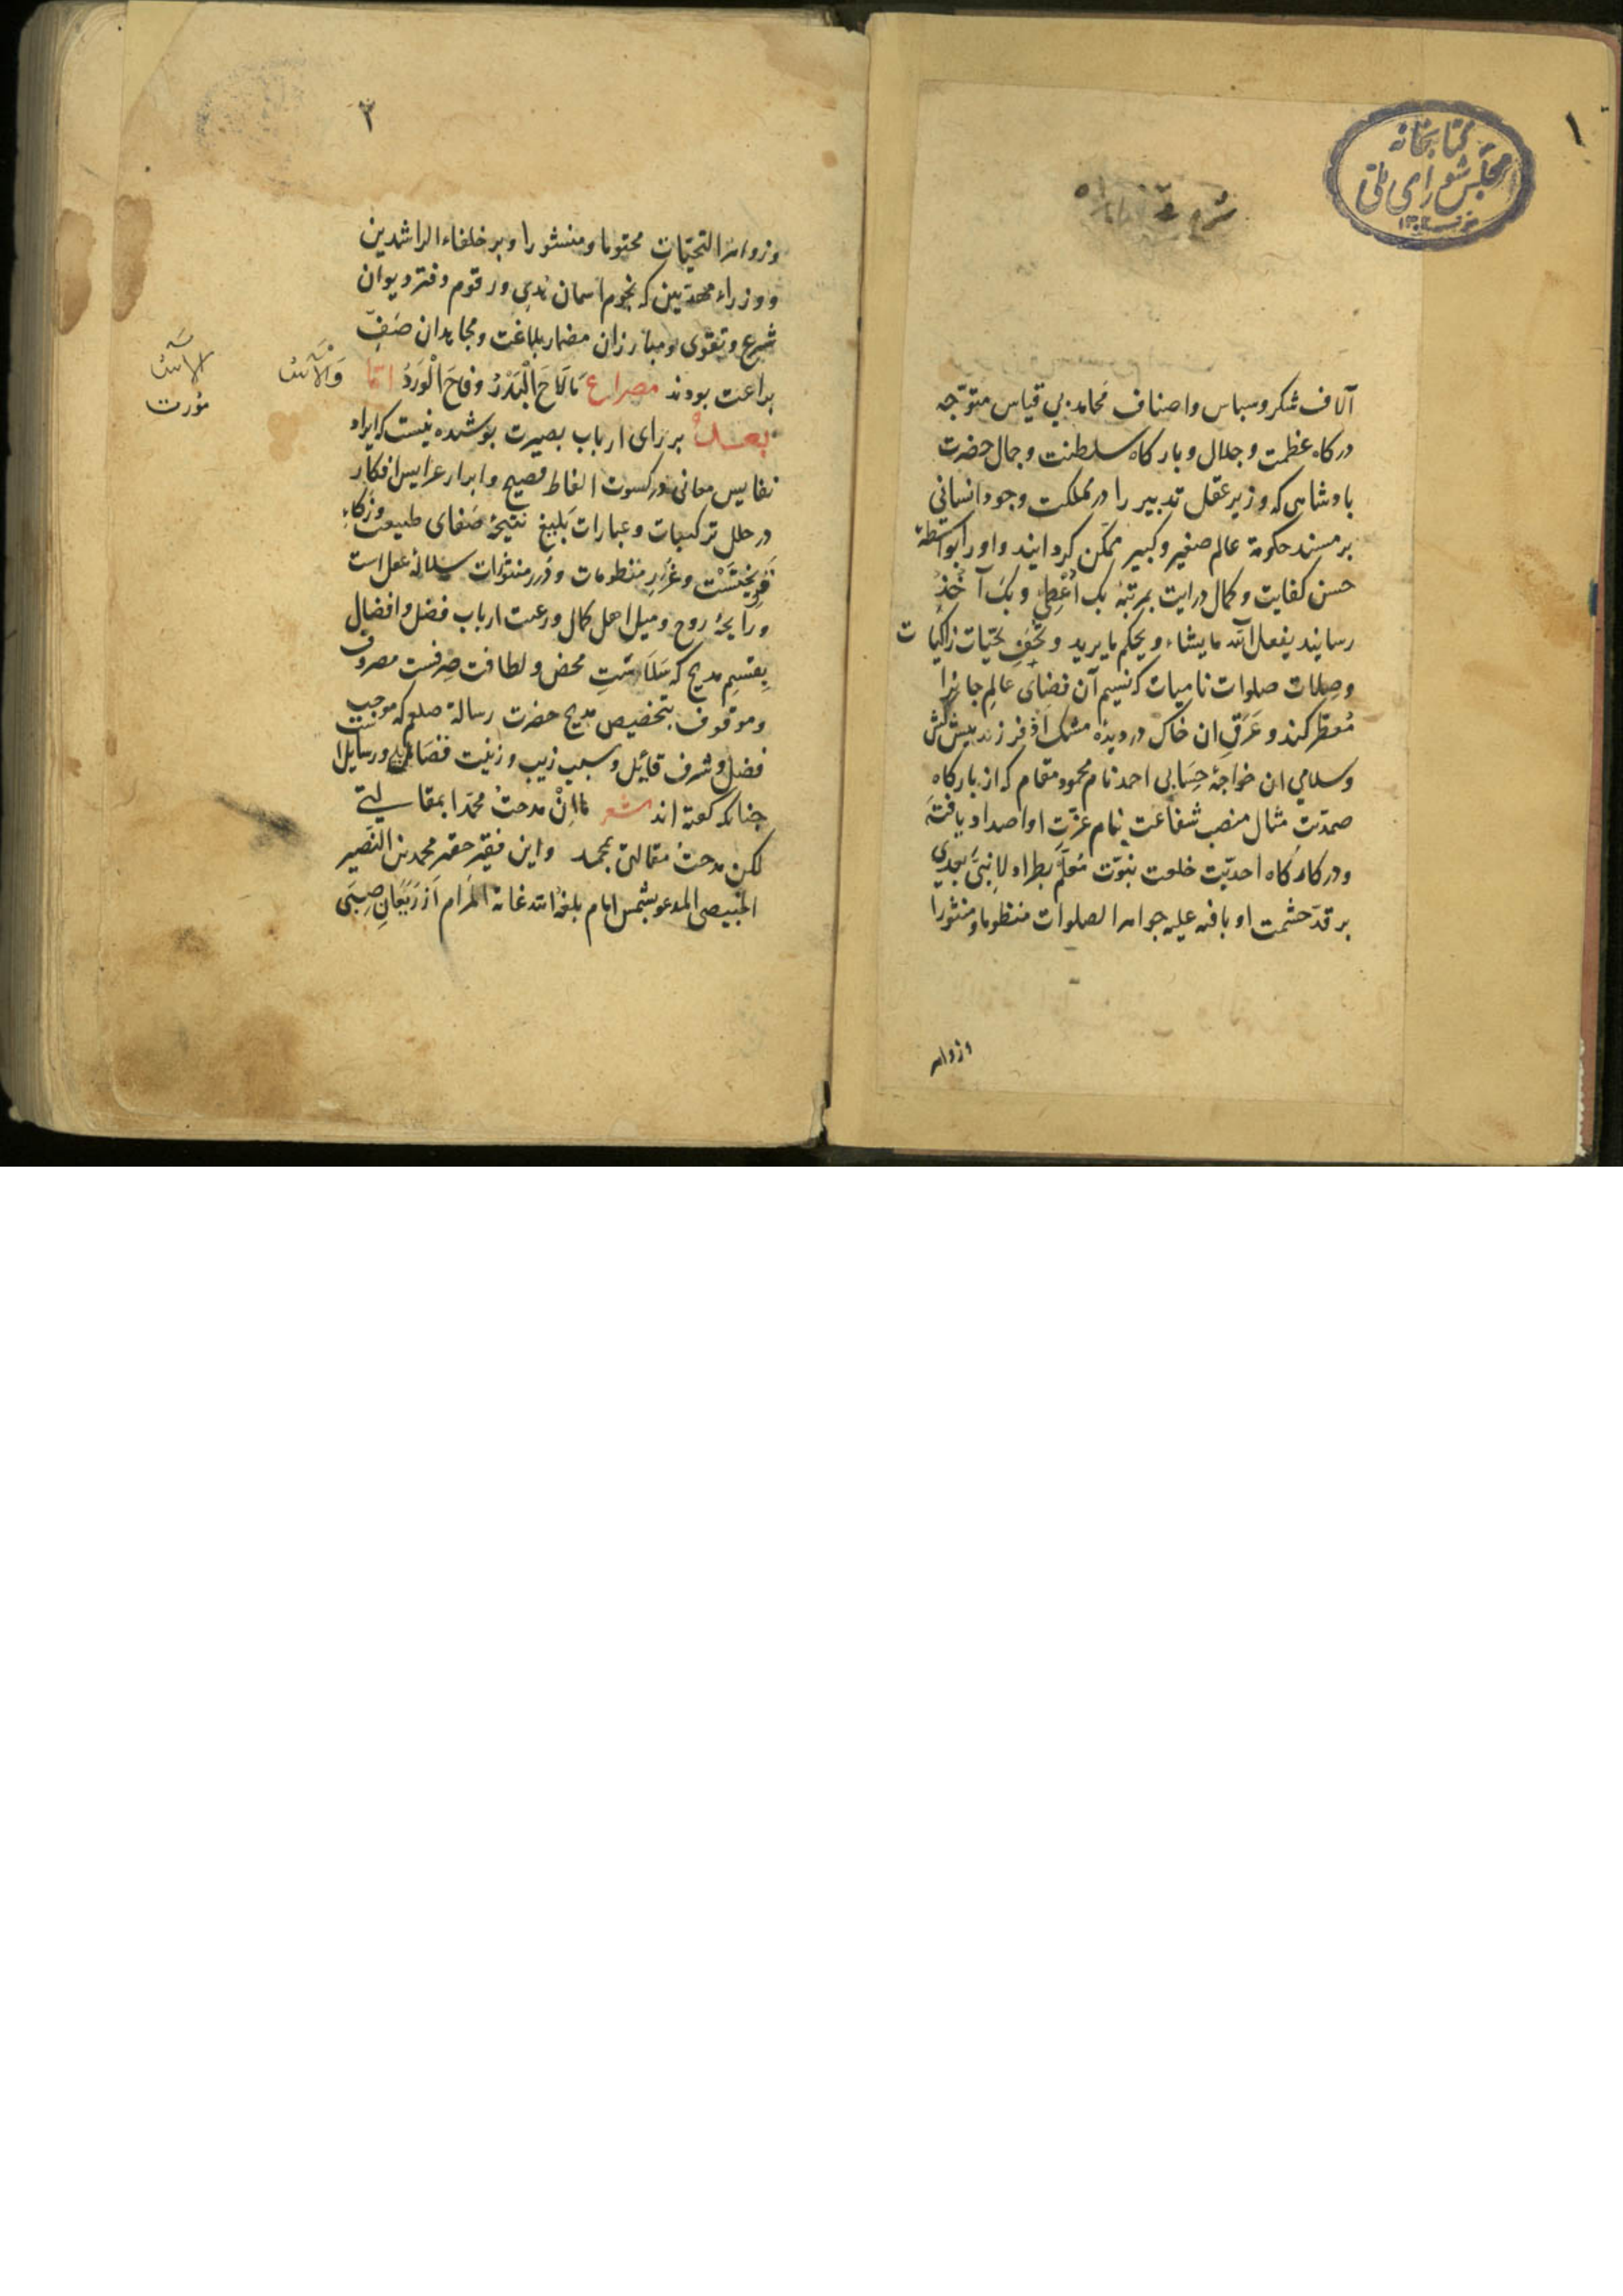 ۱
کتابخانه
مجلس شورای ملی
شرح قصیده
آلاف شکر و سپاس و اصناف مَحامد بی قیاس متوّجه
درکاه عظمت و جلال و بارکاه سلطنت و جمال حضرت
بادشاهی که وزیر عقل تدبیر را در مملکت وجود انسانی
بر مسند حکومة عالم صغیر و کبیر ممکّن کردانید و او را بواسطهٔ
حسن کفایت و کمال درایت بمرتبهٔ بک اُعْطِی و بک آخُذُ
رسانید یفعل الله ما یشاء و یحکم ما یرید و تُحَفِ تحیّات زاکیات
و صِلات صلوات نامیات که نسیم آن فضای عالمِ جانرا
مُعطّر کند و عَرَقِ ان خاک در دیده مشک اذفر زند پیش کش
و سلامی ان خواجهٔ حِسَابی احمد نام محمود مقام که از بارکاه
صمدیّت مثال منصب شفاعت بنام عزّتِ او اصدار یافته
و در کارکاه احدیّت خلعت نبوّت مُعلَّم بطراز لا نبیَّ بعدی
بر قدّ حشمت او بافته علیه جواهر الصلوات منظوما و منثورا
و زواهر
۲
و زواهر التحیّات مختوما و منشورا و بر خلفاء الراشدین
و وزراء مهدیین که نجوم آسمان هدی و رقوم دفتر دیوان
شرع و تقوی و مبارزان مضمار بلاغت و مجاهدان صَفِّ
براعت بودند مصراع مَا لَاحَ الْبَدْرُ وَفَاحَ الْوَرْدُ وَالْآسُ امّا
الآس
مورت
بعدُ بر رای ارباب بصیرت پوشیده نیست که ایراد
نفایس معانی در کسوت الفاظ فصیح و ابراز عرایس افکار
در حلل ترکیبات و عبارات بَلیغ نتیجهٔ صَفای طبیعت و ذکاء
قریحتست و غُرَرِ منظومات و دُرر منثورات سلالهٔ عقل است
و رایحهٔ روح و میل اهل کمال و رغبت ارباب فضل و افضال
بِقسمِ مدیح که سَلاستِ محض و لطافت صِرفست مصروف
و موقوف بتخصیص مدیح حضرت رسالة صلعم که موجب
فضل و شرف قائِل و سبب زیب و زینت فضَائل و رسایل
چنانکه کفته اند شعر ما اِنْ مدحتُ محمّدا بمقالتی
لکن مدحتُ مقالتی بمحمد و این فقیر حقیر محمد بن النّصیر
الخبیصی المدعو بشمس امام بلغهُ الله غایة المَرام از رَیَعَانِ صِبَی